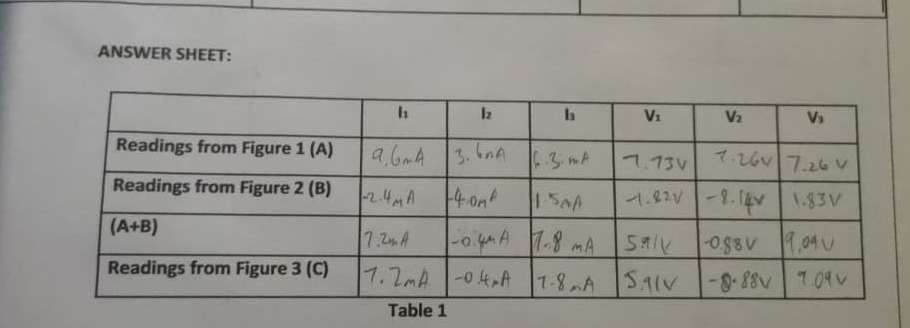 ANSWER SHEET:
I₁ I₂ I₃ V₁ V₂ V₃
Readings from Figure 1 (A) 9.6mA 3.6mA 6.3mA 7.73V 7.26V 7.26V
Readings from Figure 2 (B) -2.4mA -4.0mA 1.5mA -1.82V -8.14V 1.83V
(A+B) 7.2mA -0.4mA 7.8 mA 5.91V -0.88V 9.09V
Readings from Figure 3 (C) 7.2mA -0.4mA 7.8mA 5.91V -0.88V 9.09V
Table 1